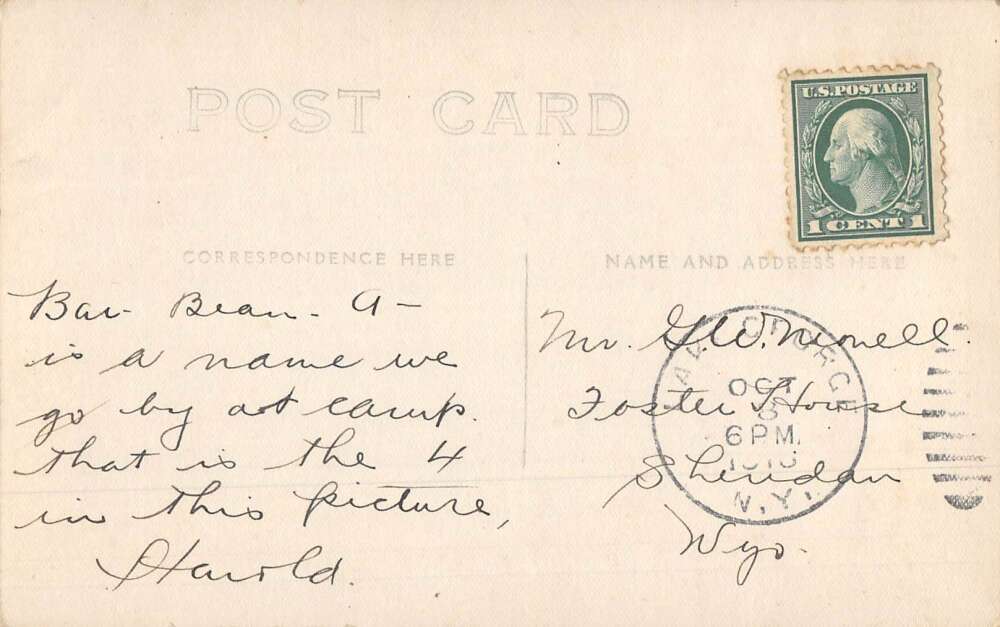 POST CARD
U.S. POSTAGE
1 CENT 1
CORRESPONDENCE HERE
NAME AND ADDRESS HERE
Bar- Bean- A-
is a name we
go by at camp.
that is the 4
in this picture,
Harold.
Mr. G.W.
Foster House
Sheridan
Wyo.
OCT
6 PM.
N.Y.